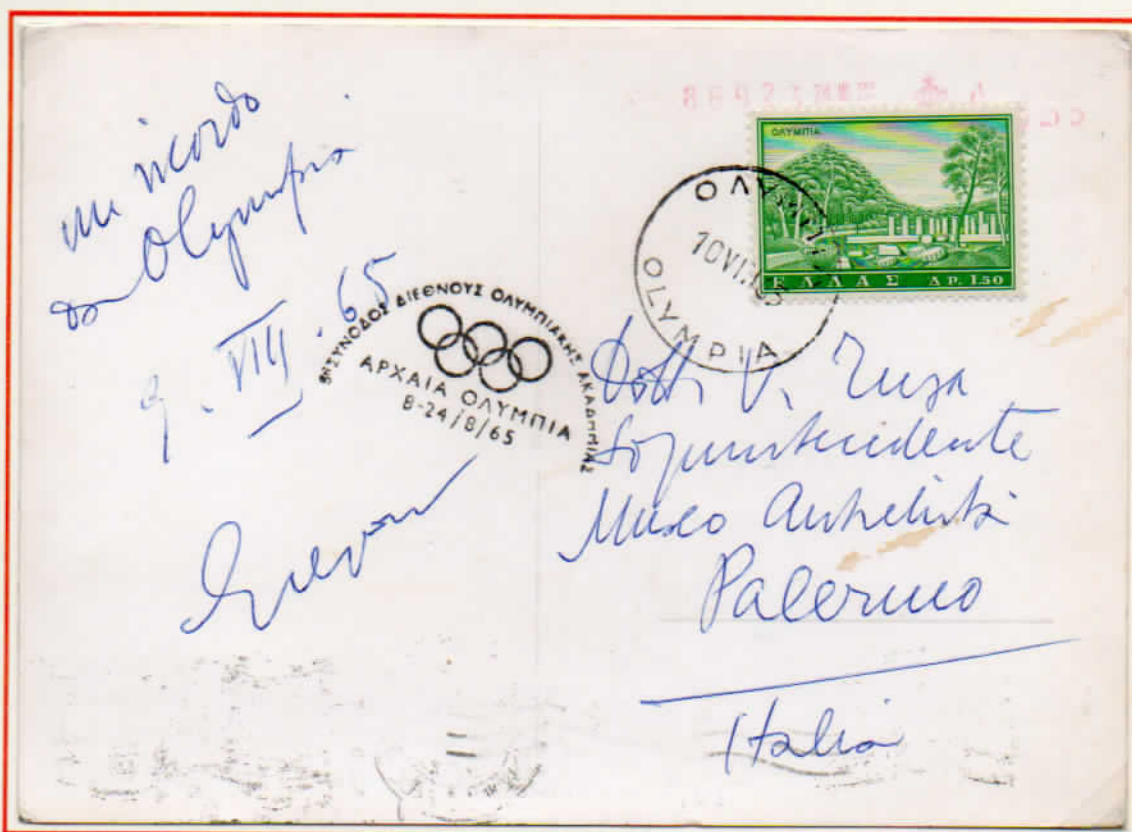 un ricordo
da Olympia
9. VIII. 65
ΣΥΝΟΔΟΣ ΔΙΕΘΝΟΥΣ ΟΛΥΜΠΙΑΚΗΣ ΑΚΑΔΗΜΙΑΣ
ΑΡΧΑΙΑ ΟΛΥΜΠΙΑ
8-24/8/65
ΟΛΥΜΠΙΑ
ΕΛΛΑΣ ΔΡ. 1.50
ΟΛΥΜΠΙΑ
OLYMPIA
Dott. V. Tusa
Soprintendente
Museo
Palermo
Italia